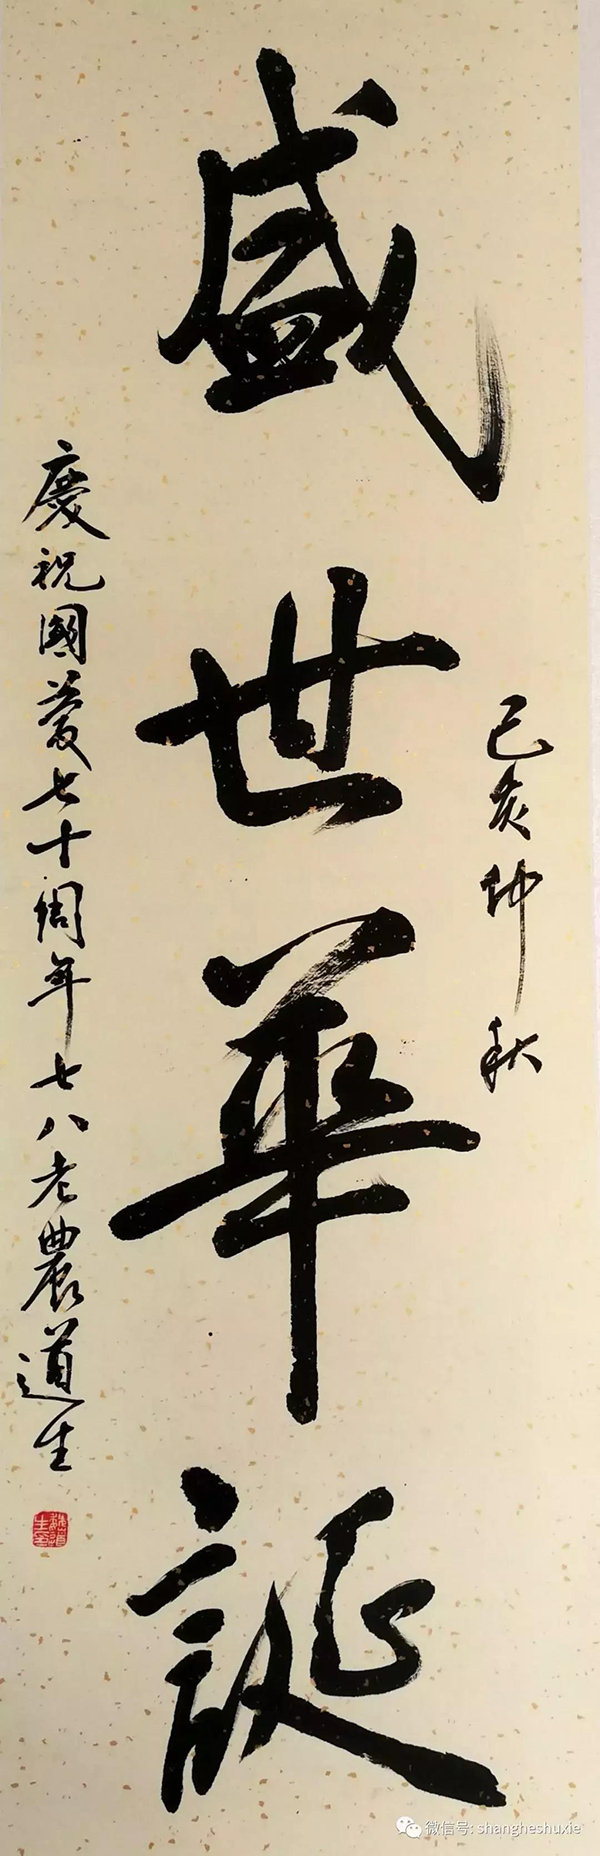 己亥仲秋
盛世華誕
慶祝國慶七十周年七八老農道生
微信号: shangheshuxie